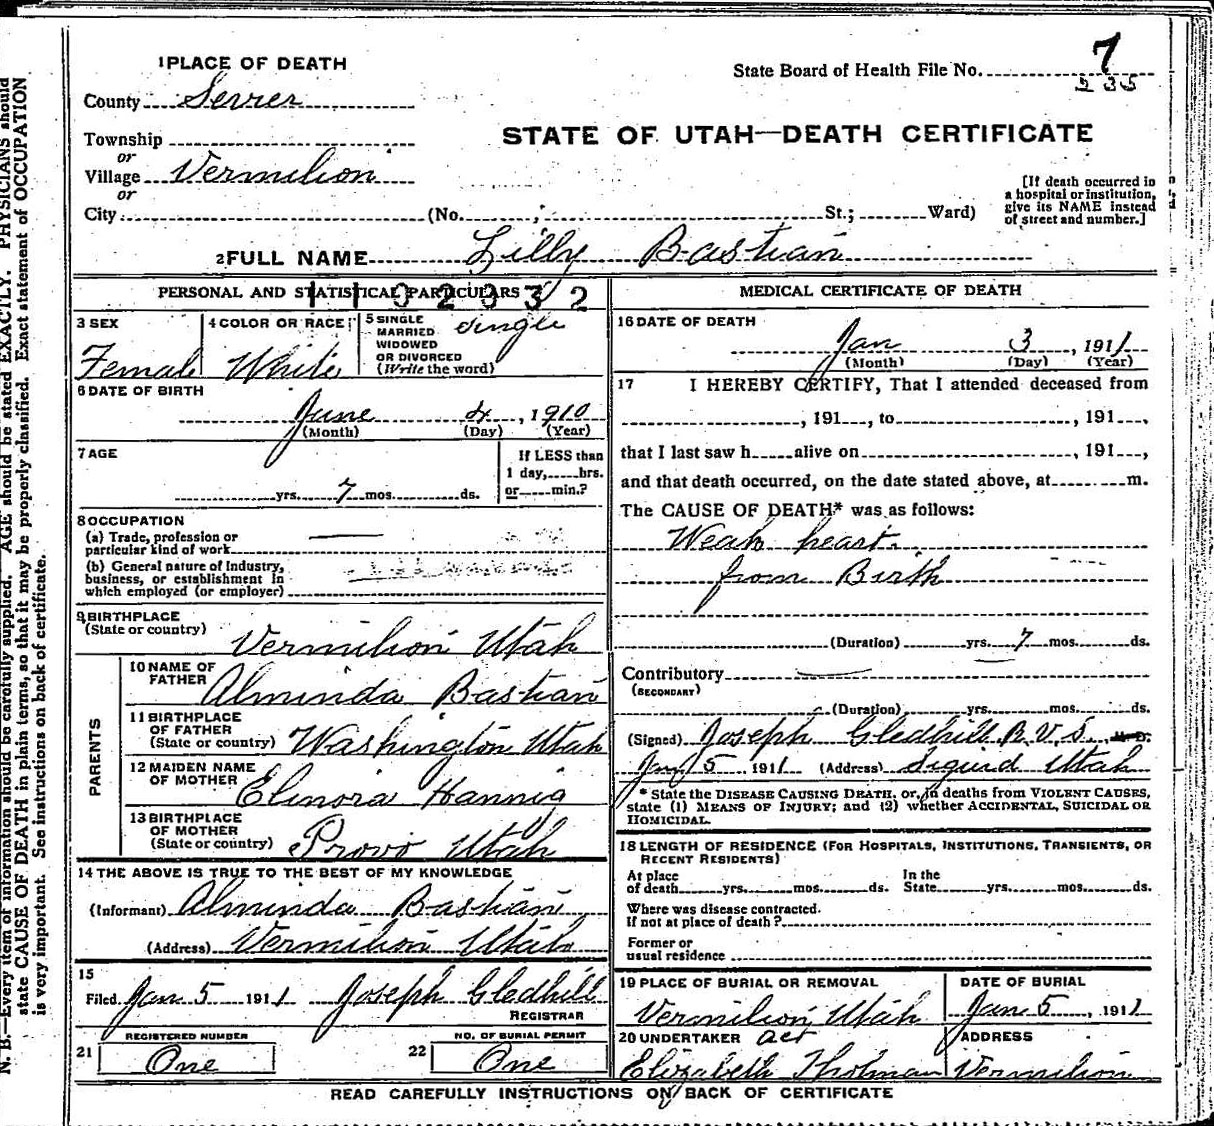 1 PLACE OF DEATH
State Board of Health File No. 7
235
County Sevier
STATE OF UTAH—DEATH CERTIFICATE
Township
or
Village Vermilion
or
City (No. , St.; Ward)
[If death occurred in
a hospital or institution,
give its NAME instead
of street and number.]
2 FULL NAME Lilly Bastian
PERSONAL AND STATISTICAL PARTICULARS
3 SEX
Female
4 COLOR OR RACE
White
5 SINGLE
MARRIED
WIDOWED
OR DIVORCED
(Write the word)
single
6 DATE OF BIRTH
June 4, 1910
(Month) (Day) (Year)
7 AGE
yrs. 7 mos. ds.
If LESS than
1 day, hrs.
or min.?
8 OCCUPATION
(a) Trade, profession or
particular kind of work —
(b) General nature of Industry,
business, or establishment in
which employed (or employer)
9 BIRTHPLACE
(State or country) Vermilion Utah
PARENTS
10 NAME OF
FATHER Alminda Bastian
11 BIRTHPLACE
OF FATHER
(State or country) Washington Utah
12 MAIDEN NAME
OF MOTHER Elinora Hannig
13 BIRTHPLACE
OF MOTHER
(State or country) Provo Utah
14 THE ABOVE IS TRUE TO THE BEST OF MY KNOWLEDGE
(Informant) Alminda Bastian
(Address) Vermilion Utah
15
Filed Jan 5 1911 Joseph Gledhill
REGISTRAR
REGISTERED NUMBER
21 One
NO. OF BURIAL PERMIT
22 One
MEDICAL CERTIFICATE OF DEATH
16 DATE OF DEATH
Jan 3, 1911
(Month) (Day) (Year)
17 I HEREBY CERTIFY, That I attended deceased from
, 191 , to , 191 ,
that I last saw h alive on , 191 ,
and that death occurred, on the date stated above, at m.
The CAUSE OF DEATH* was as follows:
Weak heart.
from Birth
(Duration) yrs. 7 mos. ds.
Contributory
(SECONDARY)
(Duration) yrs. mos. ds.
(Signed) Joseph Gledhill R.V.S. M.D.
Jany 5 1911 (Address) Sigurd Utah
* State the DISEASE CAUSING DEATH, or, in deaths from VIOLENT CAUSES,
state (1) MEANS OF INJURY; and (2) whether ACCIDENTAL, SUICIDAL OR
HOMICIDAL.
18 LENGTH OF RESIDENCE (FOR HOSPITALS, INSTITUTIONS, TRANSIENTS, OR
RECENT RESIDENTS)
At place
of death yrs. mos. ds.
In the
State yrs. mos. ds.
Where was disease contracted.
If not at place of death?
Former or
usual residence
19 PLACE OF BURIAL OR REMOVAL
Vermilion Utah
DATE OF BURIAL
Jan 5, 1911
20 UNDERTAKER act
Elizabeth
ADDRESS
Vermilion
READ CAREFULLY INSTRUCTIONS ON BACK OF CERTIFICATE
N. B.—Every item of information should be carefully supplied. AGE should be stated EXACTLY. PHYSICIANS should
state CAUSE OF DEATH in plain terms, so that it may be properly classified. Exact statement of OCCUPATION
is very important. See instructions on back of certificate.